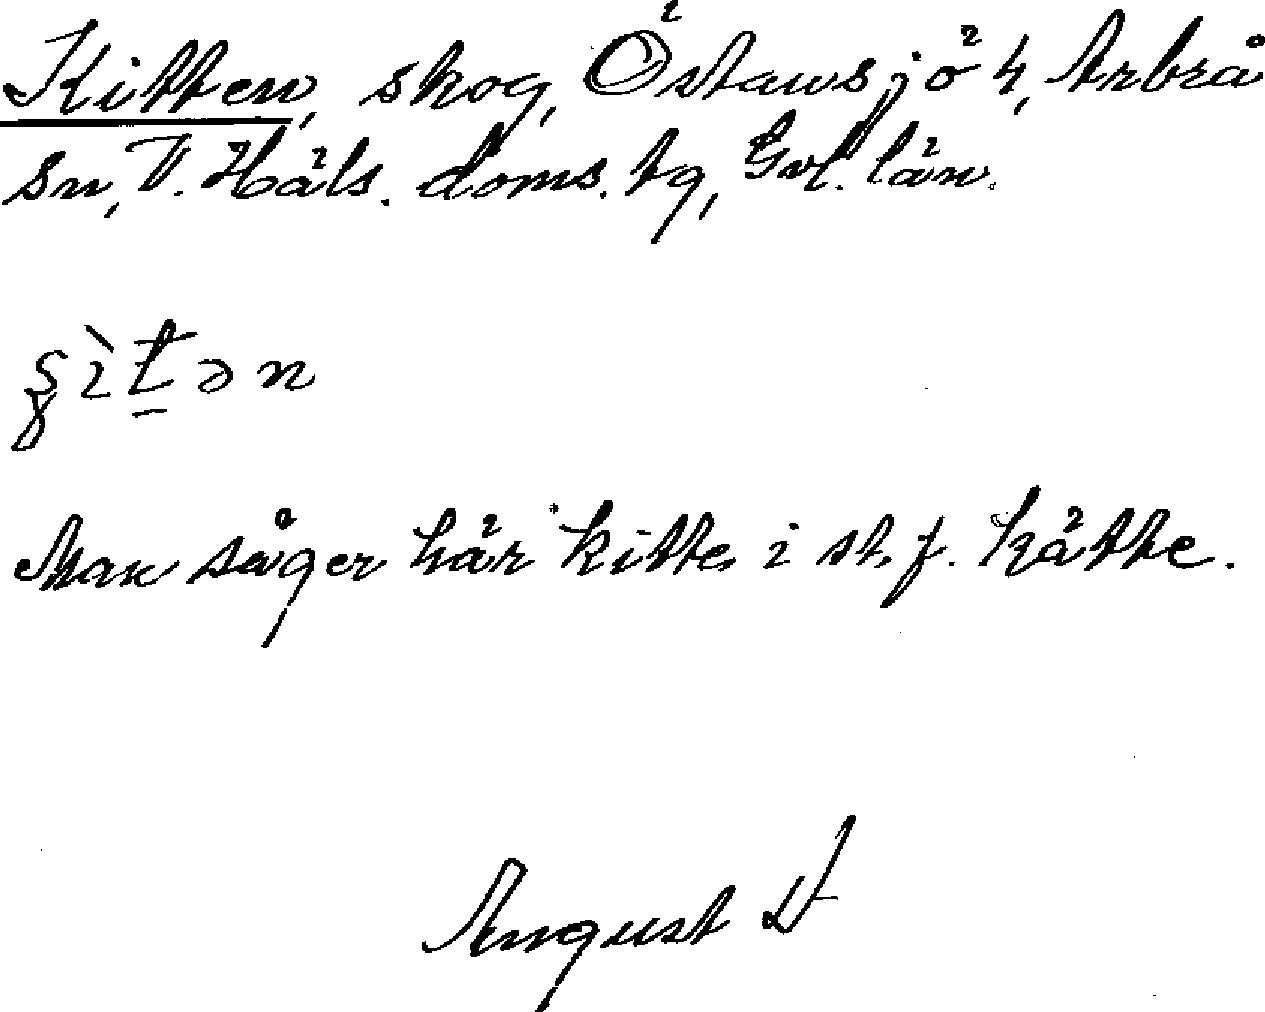 Kitten, skog, Östansjö 4, Arbrå
sn, V. Häls. doms. tg, Gvl. län.
Man säger här kitte i st. f. kätte.
August